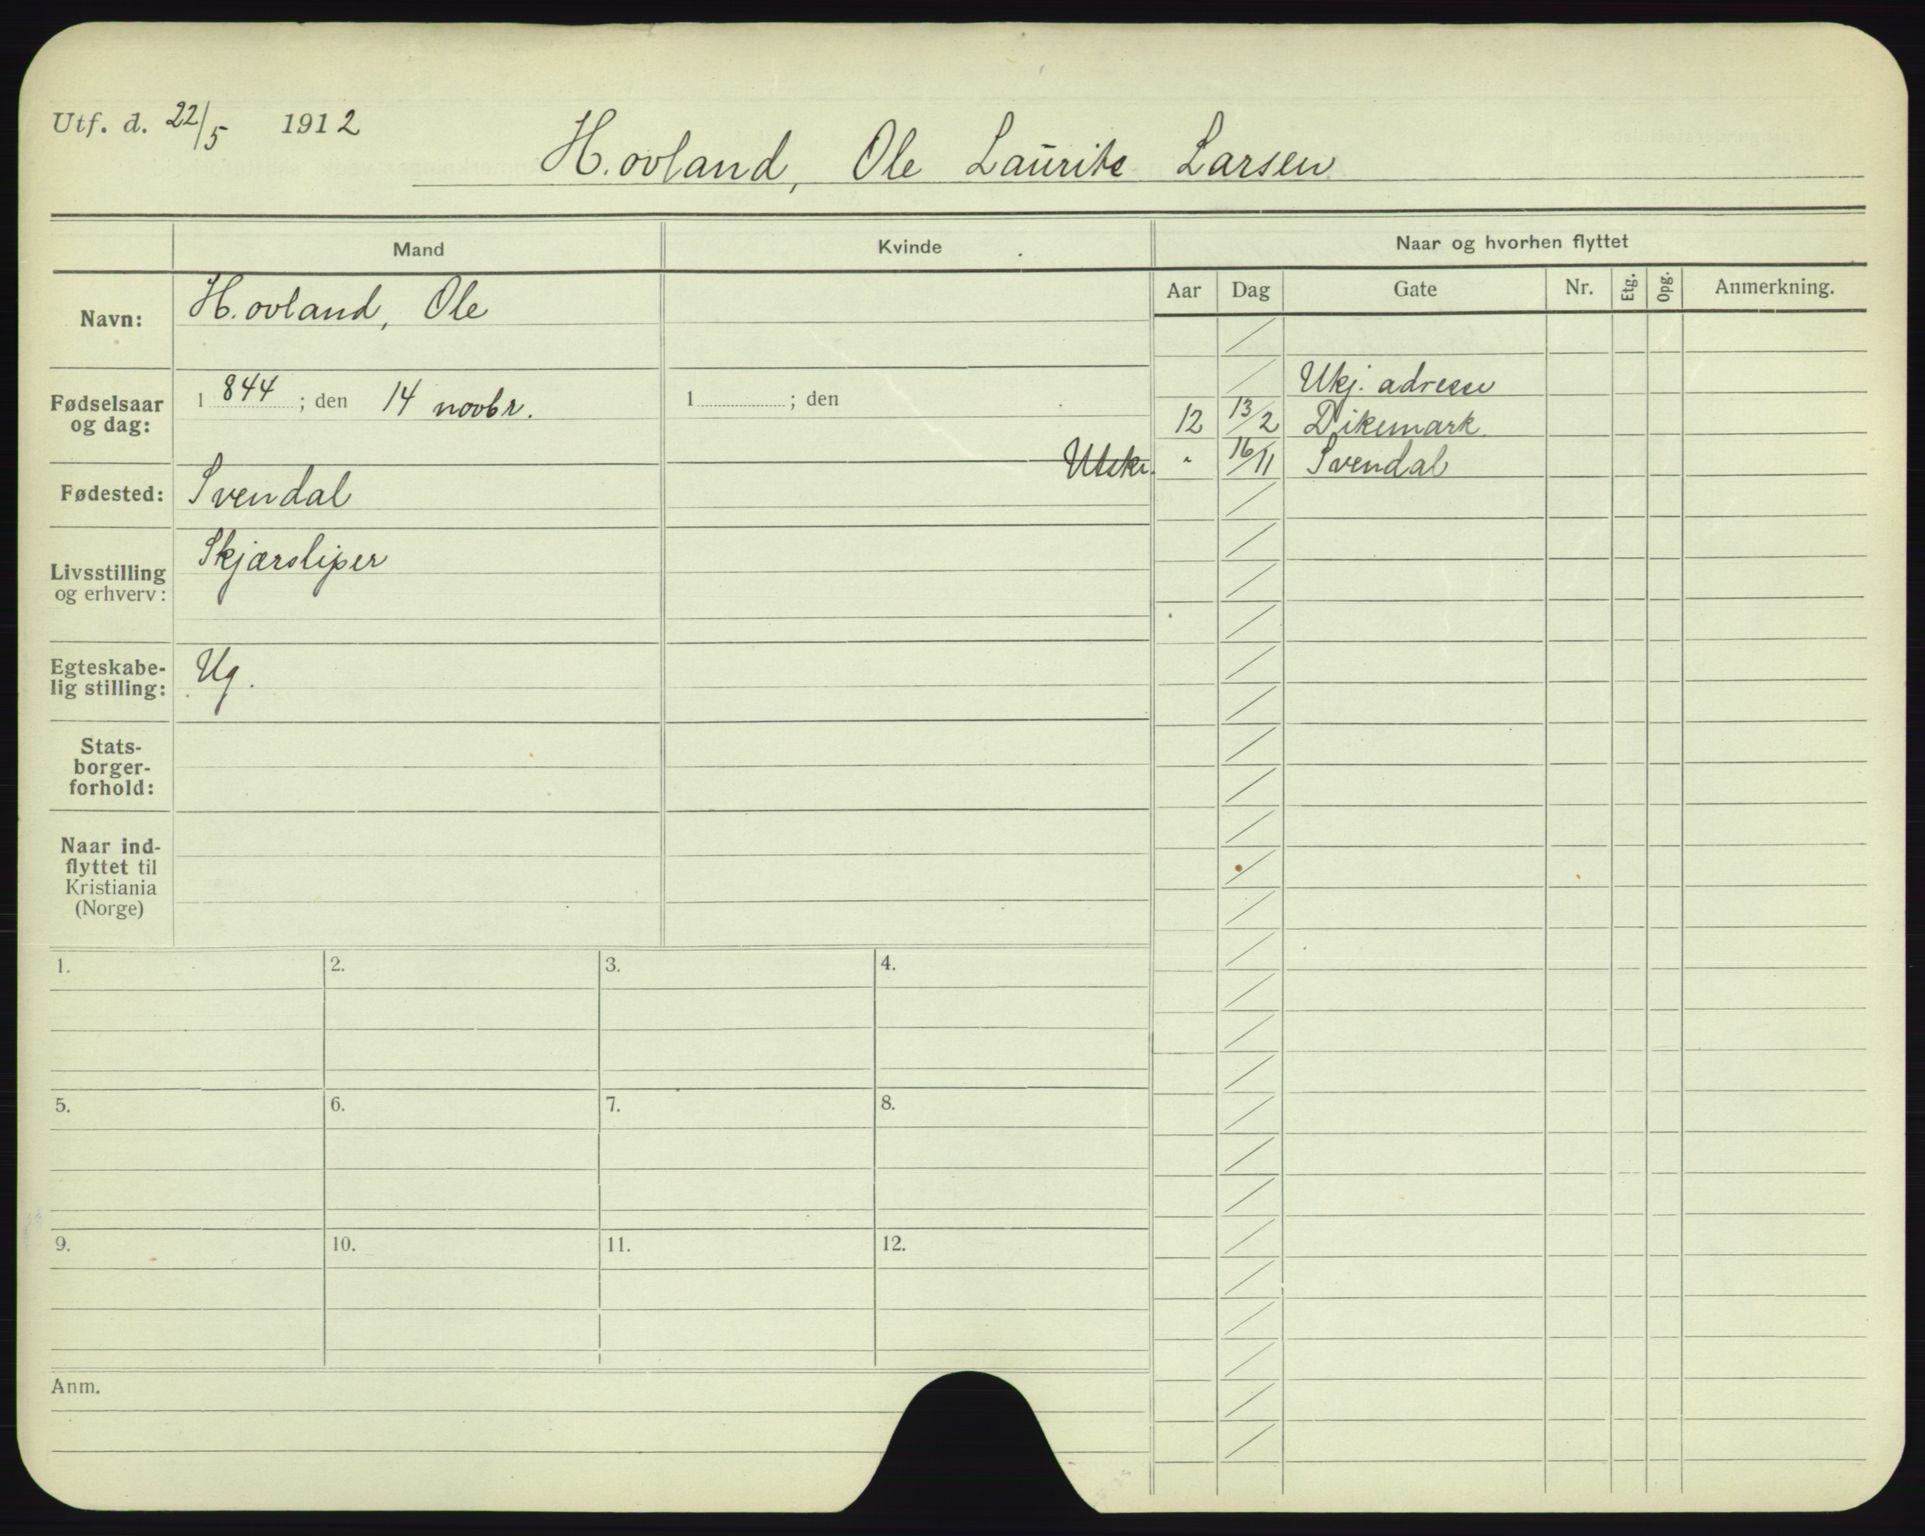 Utf. d. 22/5 1912
Hovland, Ole Laurits Larsen
Mand
Kvinde
Naar og hvorhen flyttet
Aar
Dag
Gate
Nr.
Etg.
Opg.
Anmerkning.
Navn:
Hovland, Ole
Fødselsaar
og dag:
1 844 ; den 14 novbr.
1 ; den
Ukj. adresse
12 13/2 Dikemark
Utskr. " 16/11 Svendal
Fødested:
Svendal
Livsstilling
og erhverv:
Skjærsliper
Egteskabe-
lig stilling:
Ug.
Stats-
borger-
forhold:
Naar ind-
flyttet til
Kristiania
(Norge)
1.
2.
3.
4.
5.
6.
7.
8.
9.
10.
11.
12.
Anm.